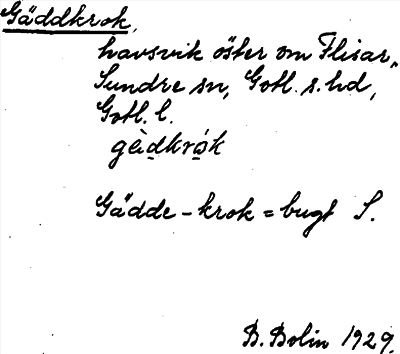 Gäddkrok,
havsvik öster om Flisar,
Sundre sn, Gotl. s. hd,
Gotl. l.
gèdkrók
Gädde-krok = bugt S.
B. Bolin 1929.